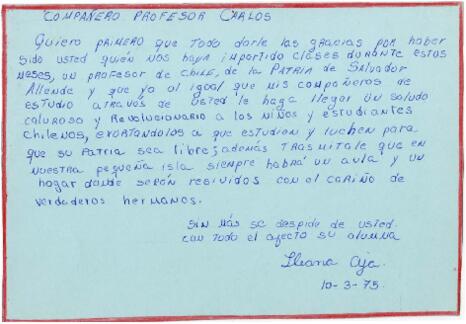 COMPAÑERO PROFESOR CARLOS
Quiero PRIMERO que TODO darle las gracias por haber
sido usted quién nos haya impartido clases DURANTE estos
MESES, un profesor de CHILE, de la PATRIA de Salvador
Allende y que yo al igual que mis compañeros de
ESTUDIO ATRAVES de USTED le haga llegar UN saludo
caluroso y REVOLUCIONARIO A los NIÑOS y ESTUDIANTES
CHILENOS, EXORTANDOLOS A que ESTUDIEN y luchen para
que su PATRIA sea libre; además TRASMITALE que EN
NUESTRA pequeña isla siempre habrá un aula y un
hogar donde serán resividos con el cariño de
verdaderos hermanos.
SIN MÁS se despide de usted.
con todo el afecto su alumna
Ileana Aja.
10-3-75.